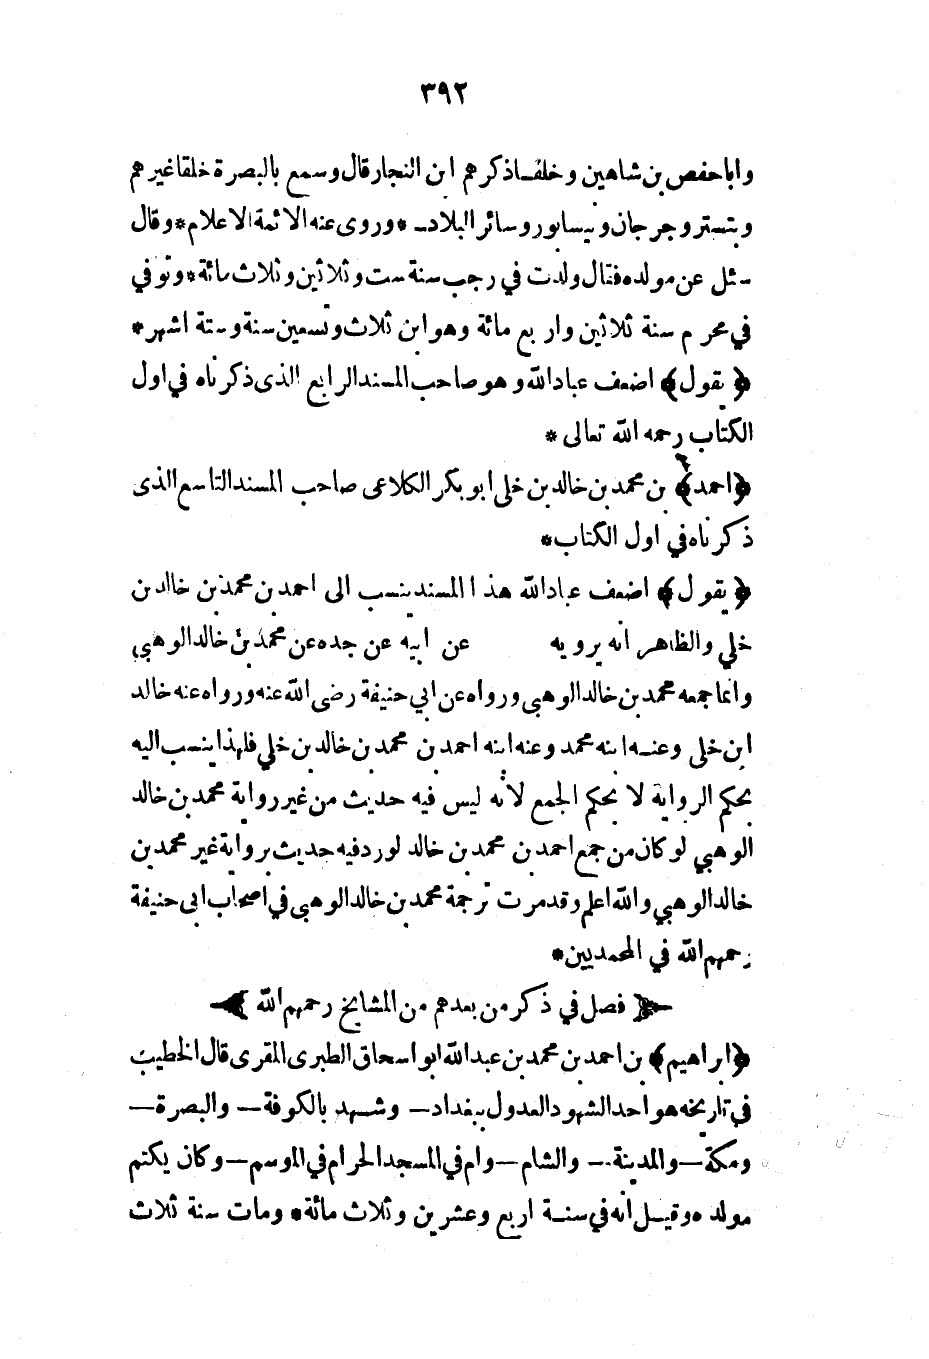 ٣٩٢
واباحفص بن شاهين وخلقا ذكرهم ابن النجار قال وسمع بالبصرة خلقا غيرهم
وبتستر وجرجان ونيسابور وسائر البلاد * وروى عنه الائمة الاعلام * وقال
سئل عن مولده فقال ولدت في رجب سنة ست وثلاثين وثلاث مائة * وتوفي
في محرم سنة ثلاثين واربع مائة وهو ابن ثلاث وتسعين سنة وستة اشهر *
﴿يقول﴾ اضعف عباد الله وهو صاحب المسند الرابع الذى ذكرناه في اول
الكتاب رحمه الله تعالى *
﴿احمد﴾ بن محمد بن خالد بن خلى ابو بكر الكلاعى صاحب المسند التاسع الذى
ذكرناه في اول الكتاب *
﴿يقول﴾ اضعف عباد الله هذا المسند ينسب الى احمد بن محمد بن خالد بن
خلي والظاهر انه يرويه عن ابيه عن جده عن محمد بن خالد الوهبي
وانما جمعه محمد بن خالد الوهبي ورواه عن ابي حنيفة رضى الله عنه ورواه عنه خالد
ابن خلى وعنه ابنه محمد وعنه ابنه احمد بن محمد بن خالد بن خلي فلهذا ينسب اليه
بحكم الرواية لا بحكم الجمع لانه ليس فيه حديث من غير رواية محمد بن خالد
الوهبي لو كان من جمع احمد بن محمد بن خالد لورد فيه حديث برواية غير محمد بن
خالد الوهبي والله اعلم وقد مرت ترجمة محمد بن خالد الوهبي في اصحاب ابى حنيفة
رحمهم الله في المحمديين *
﴿ فصل في ذكر من بعدهم من المشايخ رحمهم الله ﴾
﴿ابراهيم﴾ بن احمد بن محمد بن عبد الله ابو اسحاق الطبرى المقرى قال الخطيب
في تاريخه هو احد الشهود العدول ببغداد — وشهد بالكوفة — والبصرة —
ومكة — والمدينة — والشام — وام في المسجد الحرام في الموسم — وكان يكتم
مولده وقيل انه في سنة اربع وعشرين وثلاث مائة * ومات سنة ثلاث